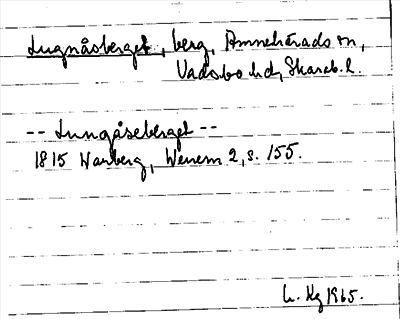 Lugnåsberget, berg, Amnehärads sn,
Vadsbo hd, Skarab. l.
-- Lungåseberget --
1815 Warberg, Wenern 2, s. 155.
L. Hg 1965.